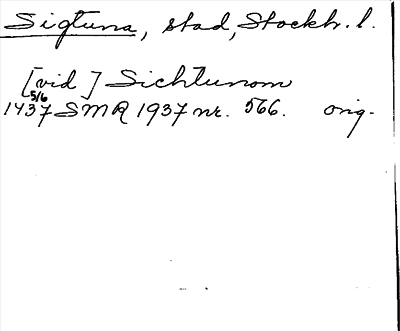 Sigtuna, stad, Stockh. l.
[vid] Sichtunom
5/6
1437 SMR 1937 nr. 566. orig.